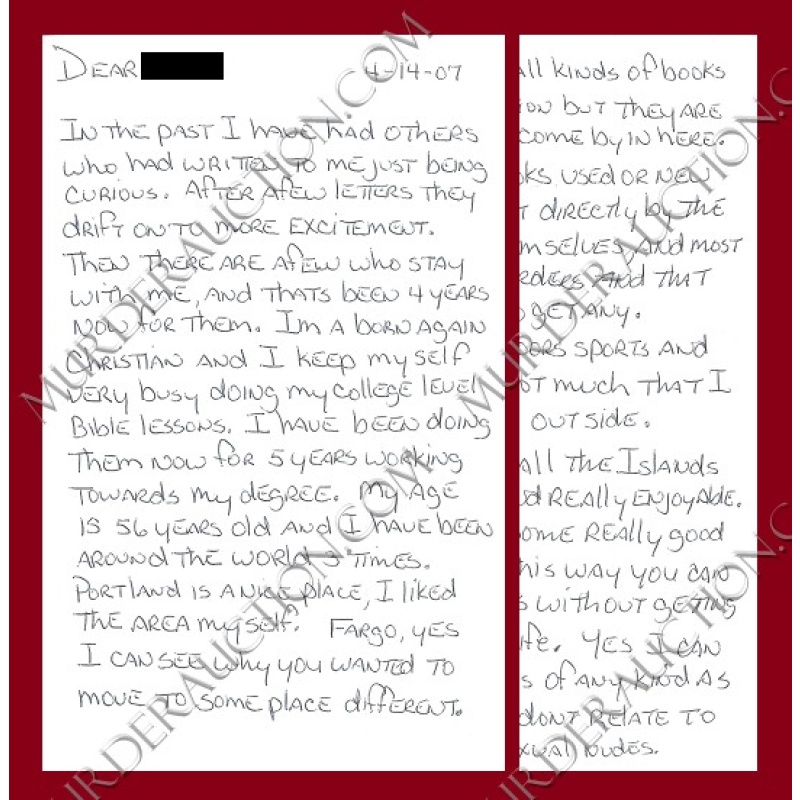 DEAR
4-14-07
IN THE PAST I HAVE HAD OTHERS
WHO HAD WRITTEN TO ME JUST BEING
CURIOUS. AFTER AFEW LETTERS THEY
DRIFT ON TO MORE EXCITEMENT.
THEN THERE ARE AFEW WHO STAY
WITH ME, AND THATS BEEN 4 YEARS
NOW FOR THEM. IM A BORN AGAIN
CHRISTIAN AND I KEEP MY SELF
VERY BUSY DOING MY COLLEGE LEVEL
BIBLE LESSONS. I HAVE BEEN DOING
THEM NOW FOR 5 YEARS WORKING
TOWARDS MY DEGREE. MY AGE
IS 56 YEARS OLD AND I HAVE BEEN
AROUND THE WORLD 3 TIMES.
PORTLAND IS A NICE PLACE, I LIKED
THE AREA MY SELF. FARGO, YES
I CAN SEE WHY YOU WANTED TO
MOVE TO SOME PLACE DIFFERENT.
All KINDS OF BOOKS
BUT THEY ARE
COME BY IN HERE.
USED OR NEW
DIRECTLY BY THE
MSELVES, AND MOST
AND THAT
GET ANY.
SPORTS AND
MUCH THAT I
OUTSIDE.
All THE ISLANDS
REALLY ENJOYABLE.
OME REALLY GOOD
HIS WAY YOU CAN
WITHOUT GETING
fe. YES I CAN
S OF ANY KIND AS
DONT RELATE TO
XUAL NUDES.
MURDERAUCTION.COM